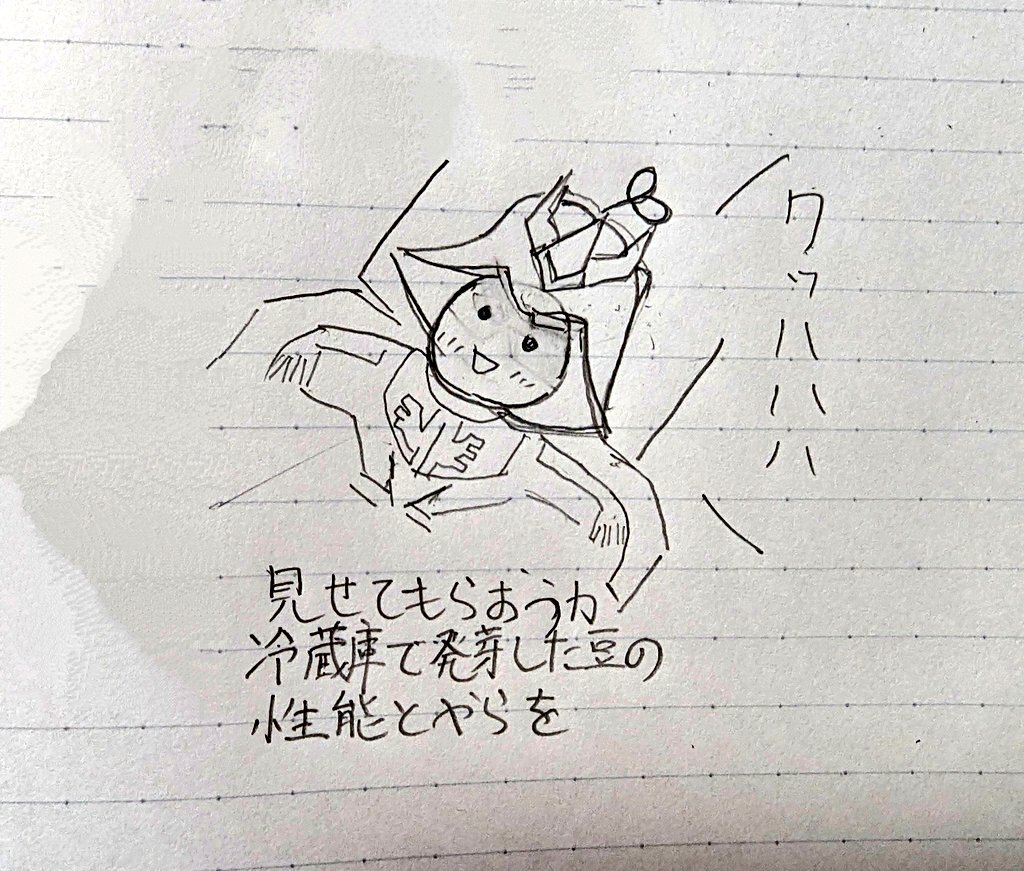 ワッハハハ
見せてもらおうか
冷蔵庫で発芽した豆の
性能とやらを